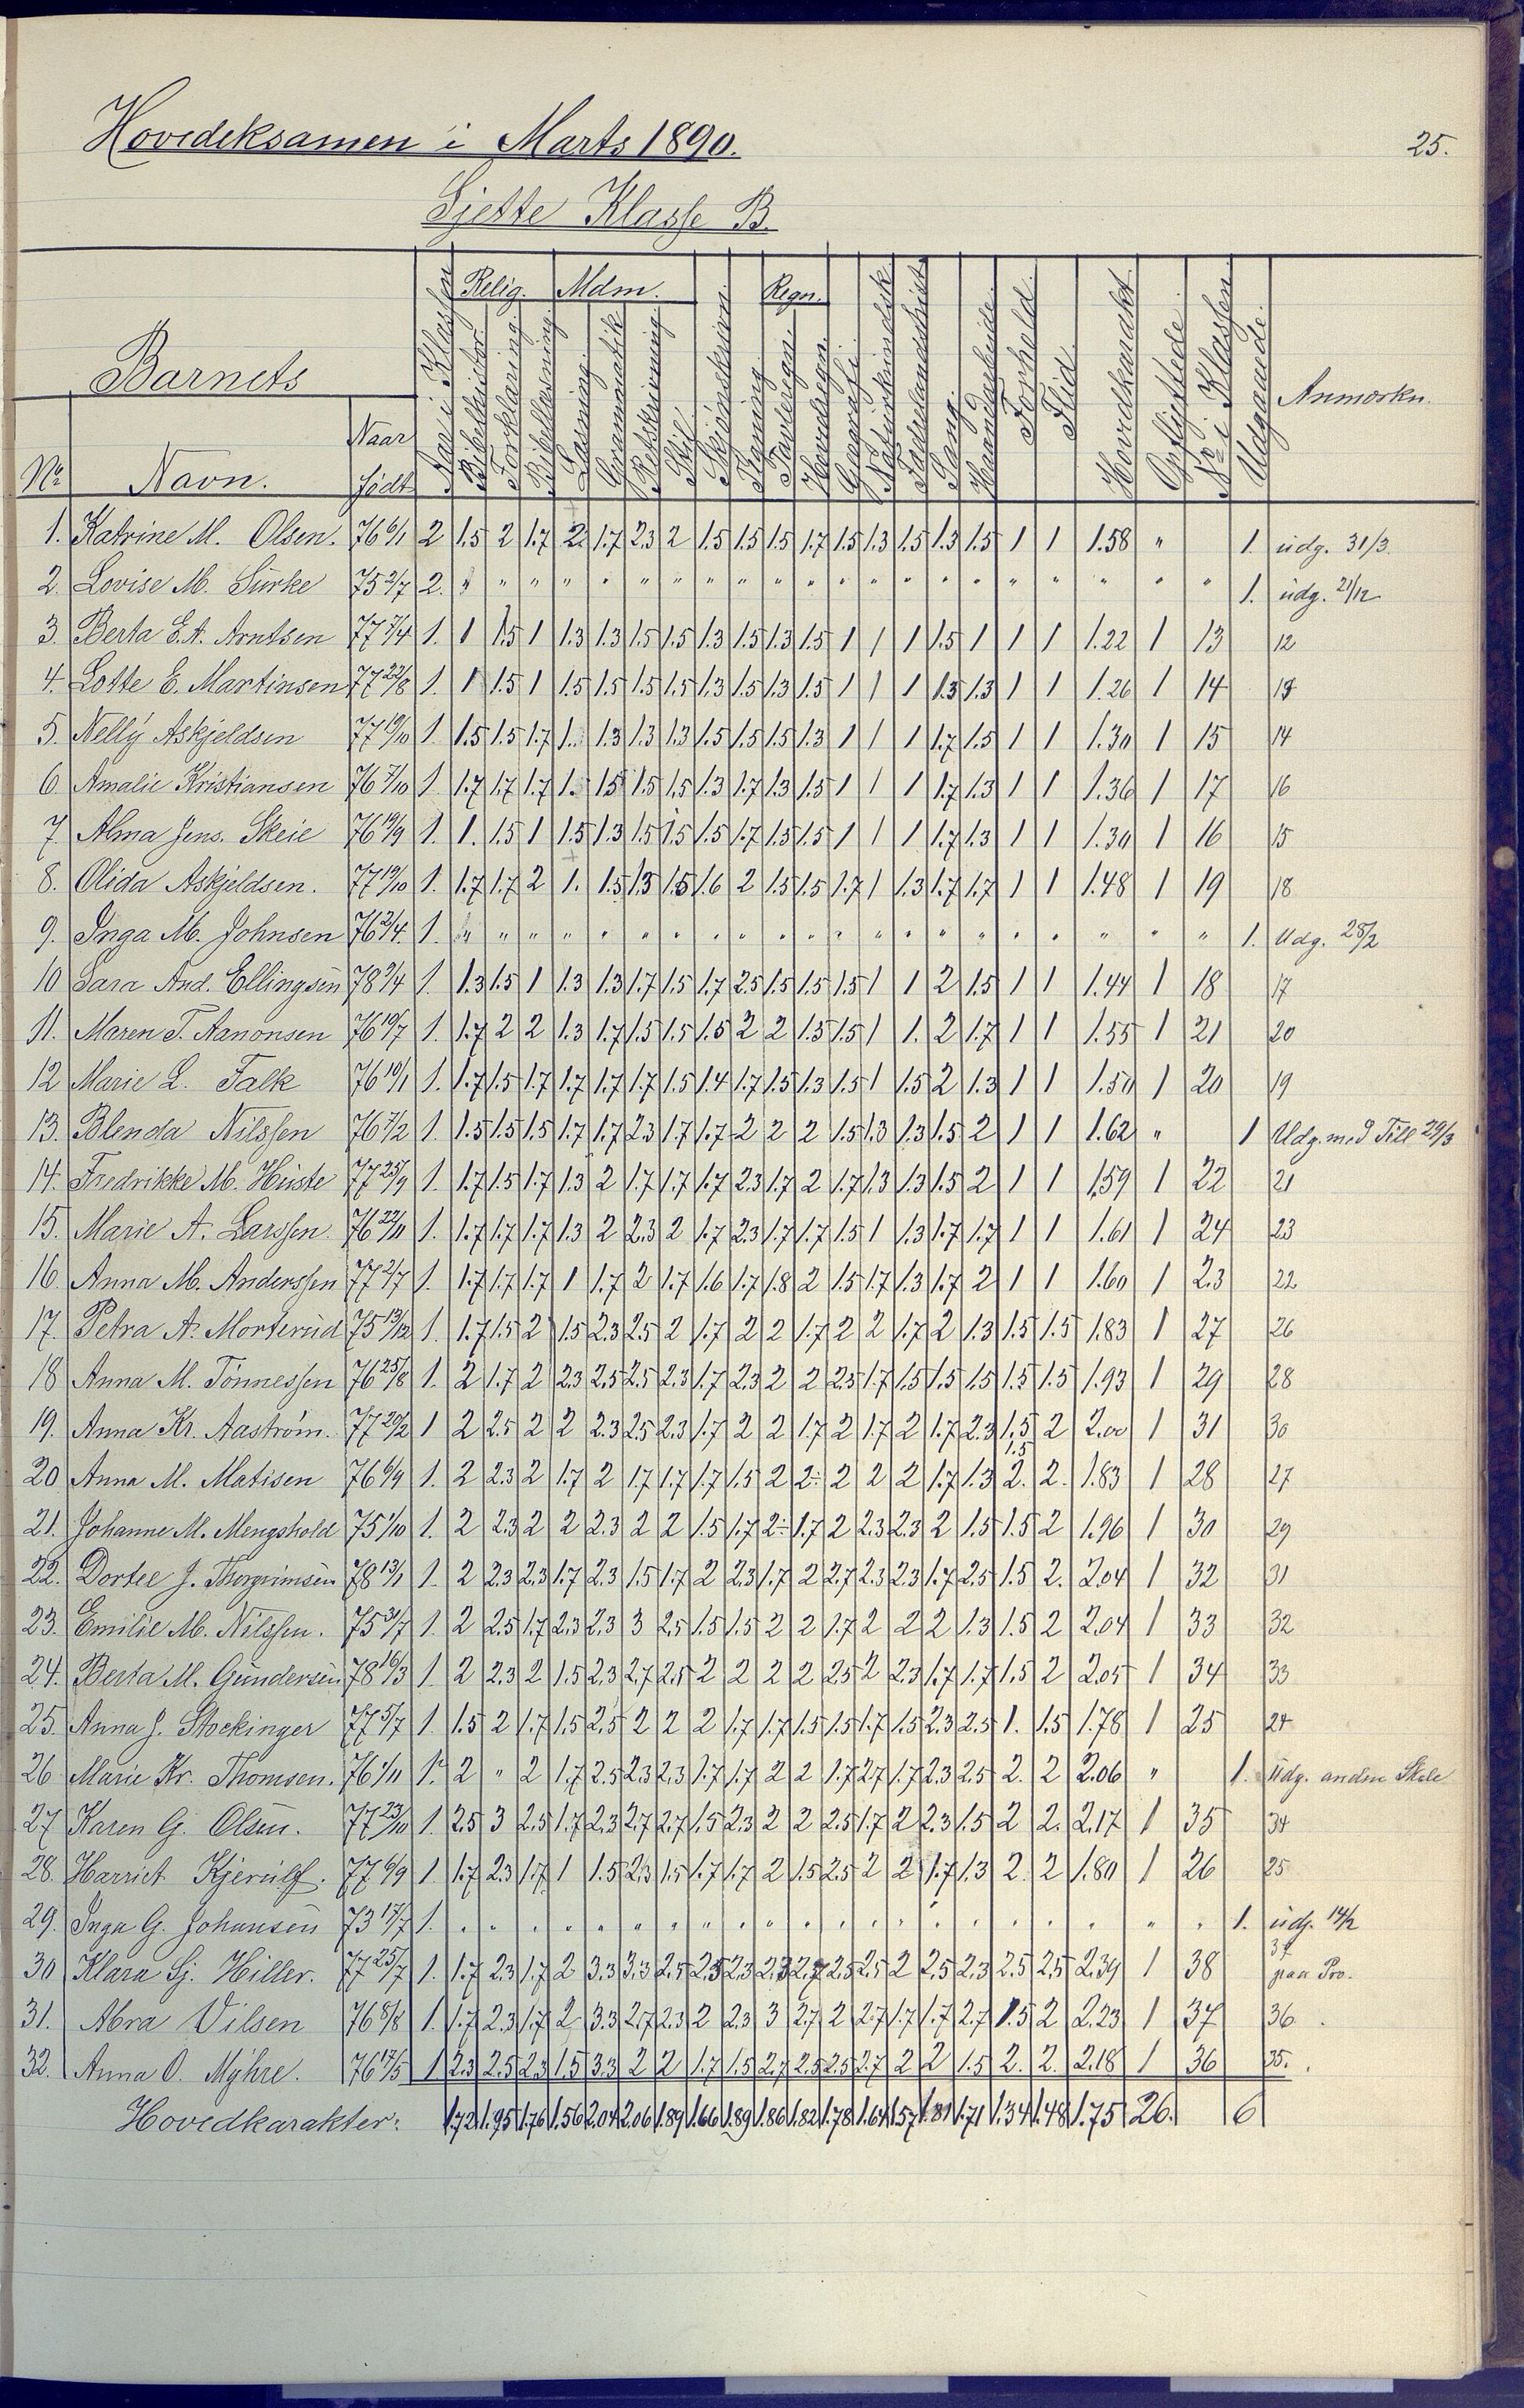 Hovedeksamen i Marts 1890.
25.
Sjette Klasse B.
Barnets
No
Navn.
Naar født
Aar i Klassen
Relig.
Bibelhistor.
Forklaring.
Bibellæsning
Mdm.
Læsning.
Grammatik
Retskrivning.
Stil
Skjönskrivn.
Tegning
Regn.
Tavleregn.
Hovedregn.
Geografi.
Naturkundsk.
Fædrelandshist
Sang.
Haandarbeide.
Forhold.
Flid.
Hovedkarakt.
Opflyttede.
No i Klassen.
Udgaaende.
Anmærkn.
1. Katrine M. Olsen. 76 6/1 2 1.5 2 1.7 2 1.7 2.3 2 1.5 1.5 1.5 1.7 1.5 1.3 1.5 1.3 1.5 1 1 1.58 " 1. udg. 31/3.
2. Lovise M. Surke 75 2/7 2. " " " " " " " " " " " " " " " " " " " " " 1. udg. 21/12
3. Berta E. A. Arntsen 77 7/4 1. 1 1.5 1 1.3 1.3 1.5 1.5 1.3 1.5 1.3 1.5 1 1 1 1.5 1 1 1 1.22 1 13 12
4. Lotte E. Martinsen 77 22/8 1. 1 1.5 1 1.5 1.5 1.5 1.5 1.3 1.5 1.3 1.5 1 1 1 1.3 1.3 1 1 1.26 1 14 13
5. Nelly Askjeldsen 77 19/10 1. 1.5 1.5 1.7 1. 1.3 1.3 1.3 1.5 1.5 1.5 1.3 1 1 1 1.7 1.5 1 1 1.30 1 15 14
6. Amalie Kristiansen 76 7/10 1. 1.7 1.7 1.7 1. 1.5 1.5 1.5 1.3 1.7 1.3 1.5 1 1 1 1.7 1.3 1 1 1.36 1 17 16
7. Alma Jens. Skeie 76 19/9 1. 1. 1.5 1 1.5 1.3 1.5 1.5 1.5 1.7 1.5 1.5 1 1 1 1.7 1.3 1 1 1.30 1 16 15
8. Olida Askjeldsen. 77 19/10 1. 1.7 1.7 2 1. 1.5 1.3 1.5 1.6 2 1.5 1.5 1.7 1 1.3 1.7 1.7 1 1 1.48 1 19 18
9. Inga M. Johnsen 76 2/4. 1. " " " " " " " " " " " " " " " " " " " " " 1. Udg. 28/2
10 Sara And. Ellingsen 78 9/4 1. 1.3 1.5 1 1.3 1.3 1.7 1.5 1.7 2.5 1.5 1.5 1.5 1 1 2 1.5 1 1 1.44 1 18 17
11. Maren T. Aanonsen 76 19/7 1. 1.7 2 2 1.3 1.7 1.5 1.5 1.5 2 2 1.5 1.5 1 1. 2 1.7 1 1 1.55 1 21 20
12 Marie L. Falk 76 10/1 1. 1.7 1.5 1.7 1.7 1.7 1.7 1.5 1.4 1.7 1.5 1.3 1.5 1 1.5 2 1.3 1 1 1.50 1 20 19
13. Blenda Nilssen 76 7/2 1. 1.5 1.5 1.5 1.7 1.7 2.3 1.7 1.7 2 2 2 1.5 1.3 1.3 1.5 2 1 1 1.62 " 1 Udg. med Till 29/3
14. Fredrikke M. Huste 77 25/9 1. 1.7 1.5 1.7 1.3 2 1.7 1.7 1.7 2.3 1.7 2 1.7 1.3 1.3 1.5 2 1 1 1.59 1 22 21
15. Marie A. Larssen. 76 22/11 1. 1.7 1.7 1.7 1.3 2 2.3 2 1.7 2.3 1.7 1.7 1.5 1 1.3 1.7 1.7 1 1 1.61 1 24 23
16. Anna M. Anderssen 77 2/7 1. 1.7 1.7 1.7 1 1.7 2 1.7 1.6 1.7 1.8 2 1.5 1.7 1.3 1.7 2 1 1 1.60 1 23 22
17. Petra A. Morterud 75 13/12 1. 1.7 1.5 2 1.5 2.3 2.5 2 1.7 2 2 1.7 2 2 1.7 2 1.3 1.5 1.5 1.83 1 27 26
18 Anna M. Tönnessen 76 25/8 1. 2 1.7 2 2.3 2.5 2.5 2.3 1.7 2.3 2 2 2.5 1.7 1.5 1.5 1.5 1.5 1.5 1.93 1 29 28
19. Anna Kr. Aaström. 77 20/2 1 2 2.5 2 2 2.3 2.5 2.3 1.7 2 2 1.7 2 1.7 2 1.7 2.3 1.5 2 2.00 1 31 30
20 Anna M. Matisen 76 6/9 1. 2 2.3 2 1.7 2 1.7 1.7 1.7 1.5 2 2 2 2 2 1.7 1.3 1.5 2. 2. 1.83 1 28 27
21. Johanne M. Mengshold 75 1/10 1. 2 2.3 2 2 2.3 2 2 1.5 1.7 2 1.7 2 2.3 2.3 2 1.5 1.5 2 1.96 1 30 29
22. Dortee J. Thorgrimsen 78 13/1 1. 2 2.3 2.3 1.7 2.3 1.5 1.7 2 2.3 1.7 2 2.7 2.3 2.3 1.7 2.5 1.5 2. 2.04 1 32 31
23. Emilie M. Nilssen. 75 31/7 1. 2 2.5 1.7 2.3 2.3 3 2.5 1.5 1.5 2 2 1.7 2 2 2 1.3 1.5 2 2.04 1 33 32
24. Berta M. Gundersen 78 16/3 1. 2 2.3 2 1.5 2.3 2.7 2.5 2 2 2 2 2.5 2 2.3 1.7 1.7 1.5 2 2.05 1 34 33
25. Anna J. Stockinger 77 5/7 1. 1.5 2 1.7 1.5 2.5 2 2 2 1.7 1.7 1.5 1.5 1.7 1.5 2.3 2.5 1. 1.5 1.78 1 25 24
26 Marie Kr. Thomsen. 76 1/11 1. 2 " 2 1.7 2.5 2.3 2.3 1.7 1.7 2 2 1.7 2.7 1.7 2.3 2.5 2. 2 2.06 " 1. Udg. anden Skole
27 Karen G. Olsen. 77 23/10 1. 2.5 3 2.5 1.7 2.3 2.7 2.7 1.5 2.3 2 2 2.5 1.7 2 2.3 1.5 2 2. 2.17 1 35 34
28. Harriet Kjerulf. 77 6/9 1 1.7 2.3 1.7 1 1.5 2.3 1.5 1.7 1.7 2 1.5 2.5 2 2 1.7 1.3 2. 2 1.80 1 26 25
29. Inga G. Johansen 73 17/7 1. " " " " " " " " " " " " " " " " " " " " " 1. udg. 14/2
30 Klara Sj. Hiller. 77 25/7 1. 1.7 2.3 1.7 2 3.3 3.3 2.5 2.5 2.3 2.3 2.7 2.5 2.5 2 2.5 2.3 2.5 2.5 2.39 1 38 37 paa Prø.
31. Abra Vilsen 76 8/8 1. 1.7 2.3 1.7 2 3.3 2.7 2.3 2 2.3 3 2.7 2 2.7 1.7 1.7 2.7 1.5 2 2.23 1 37 36
32. Anna O. Myhre. 76 17/5 1 2.3 2.5 2.3 1.5 3.3 2 2 1.7 1.5 2.7 2.5 2.5 2.7 2 2 1.5 2. 2. 2.18 1 36 35.
Hovedkarakter: 1.72 1.95 1.76 1.56 2.04 2.06 1.89 1.66 1.89 1.86 1.82 1.78 1.64 1.57 1.81 1.71 1.34 1.48 1.75 26. 6